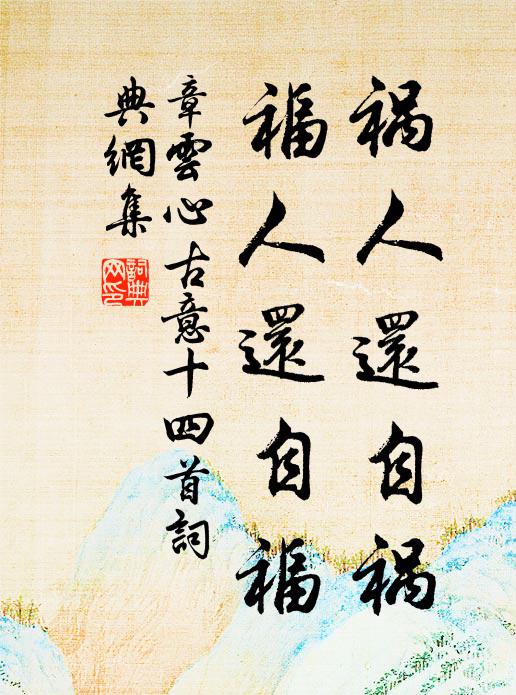 禍人還自禍
福人還自福
章雲心古意十四首詞
典網集
詞典
网印